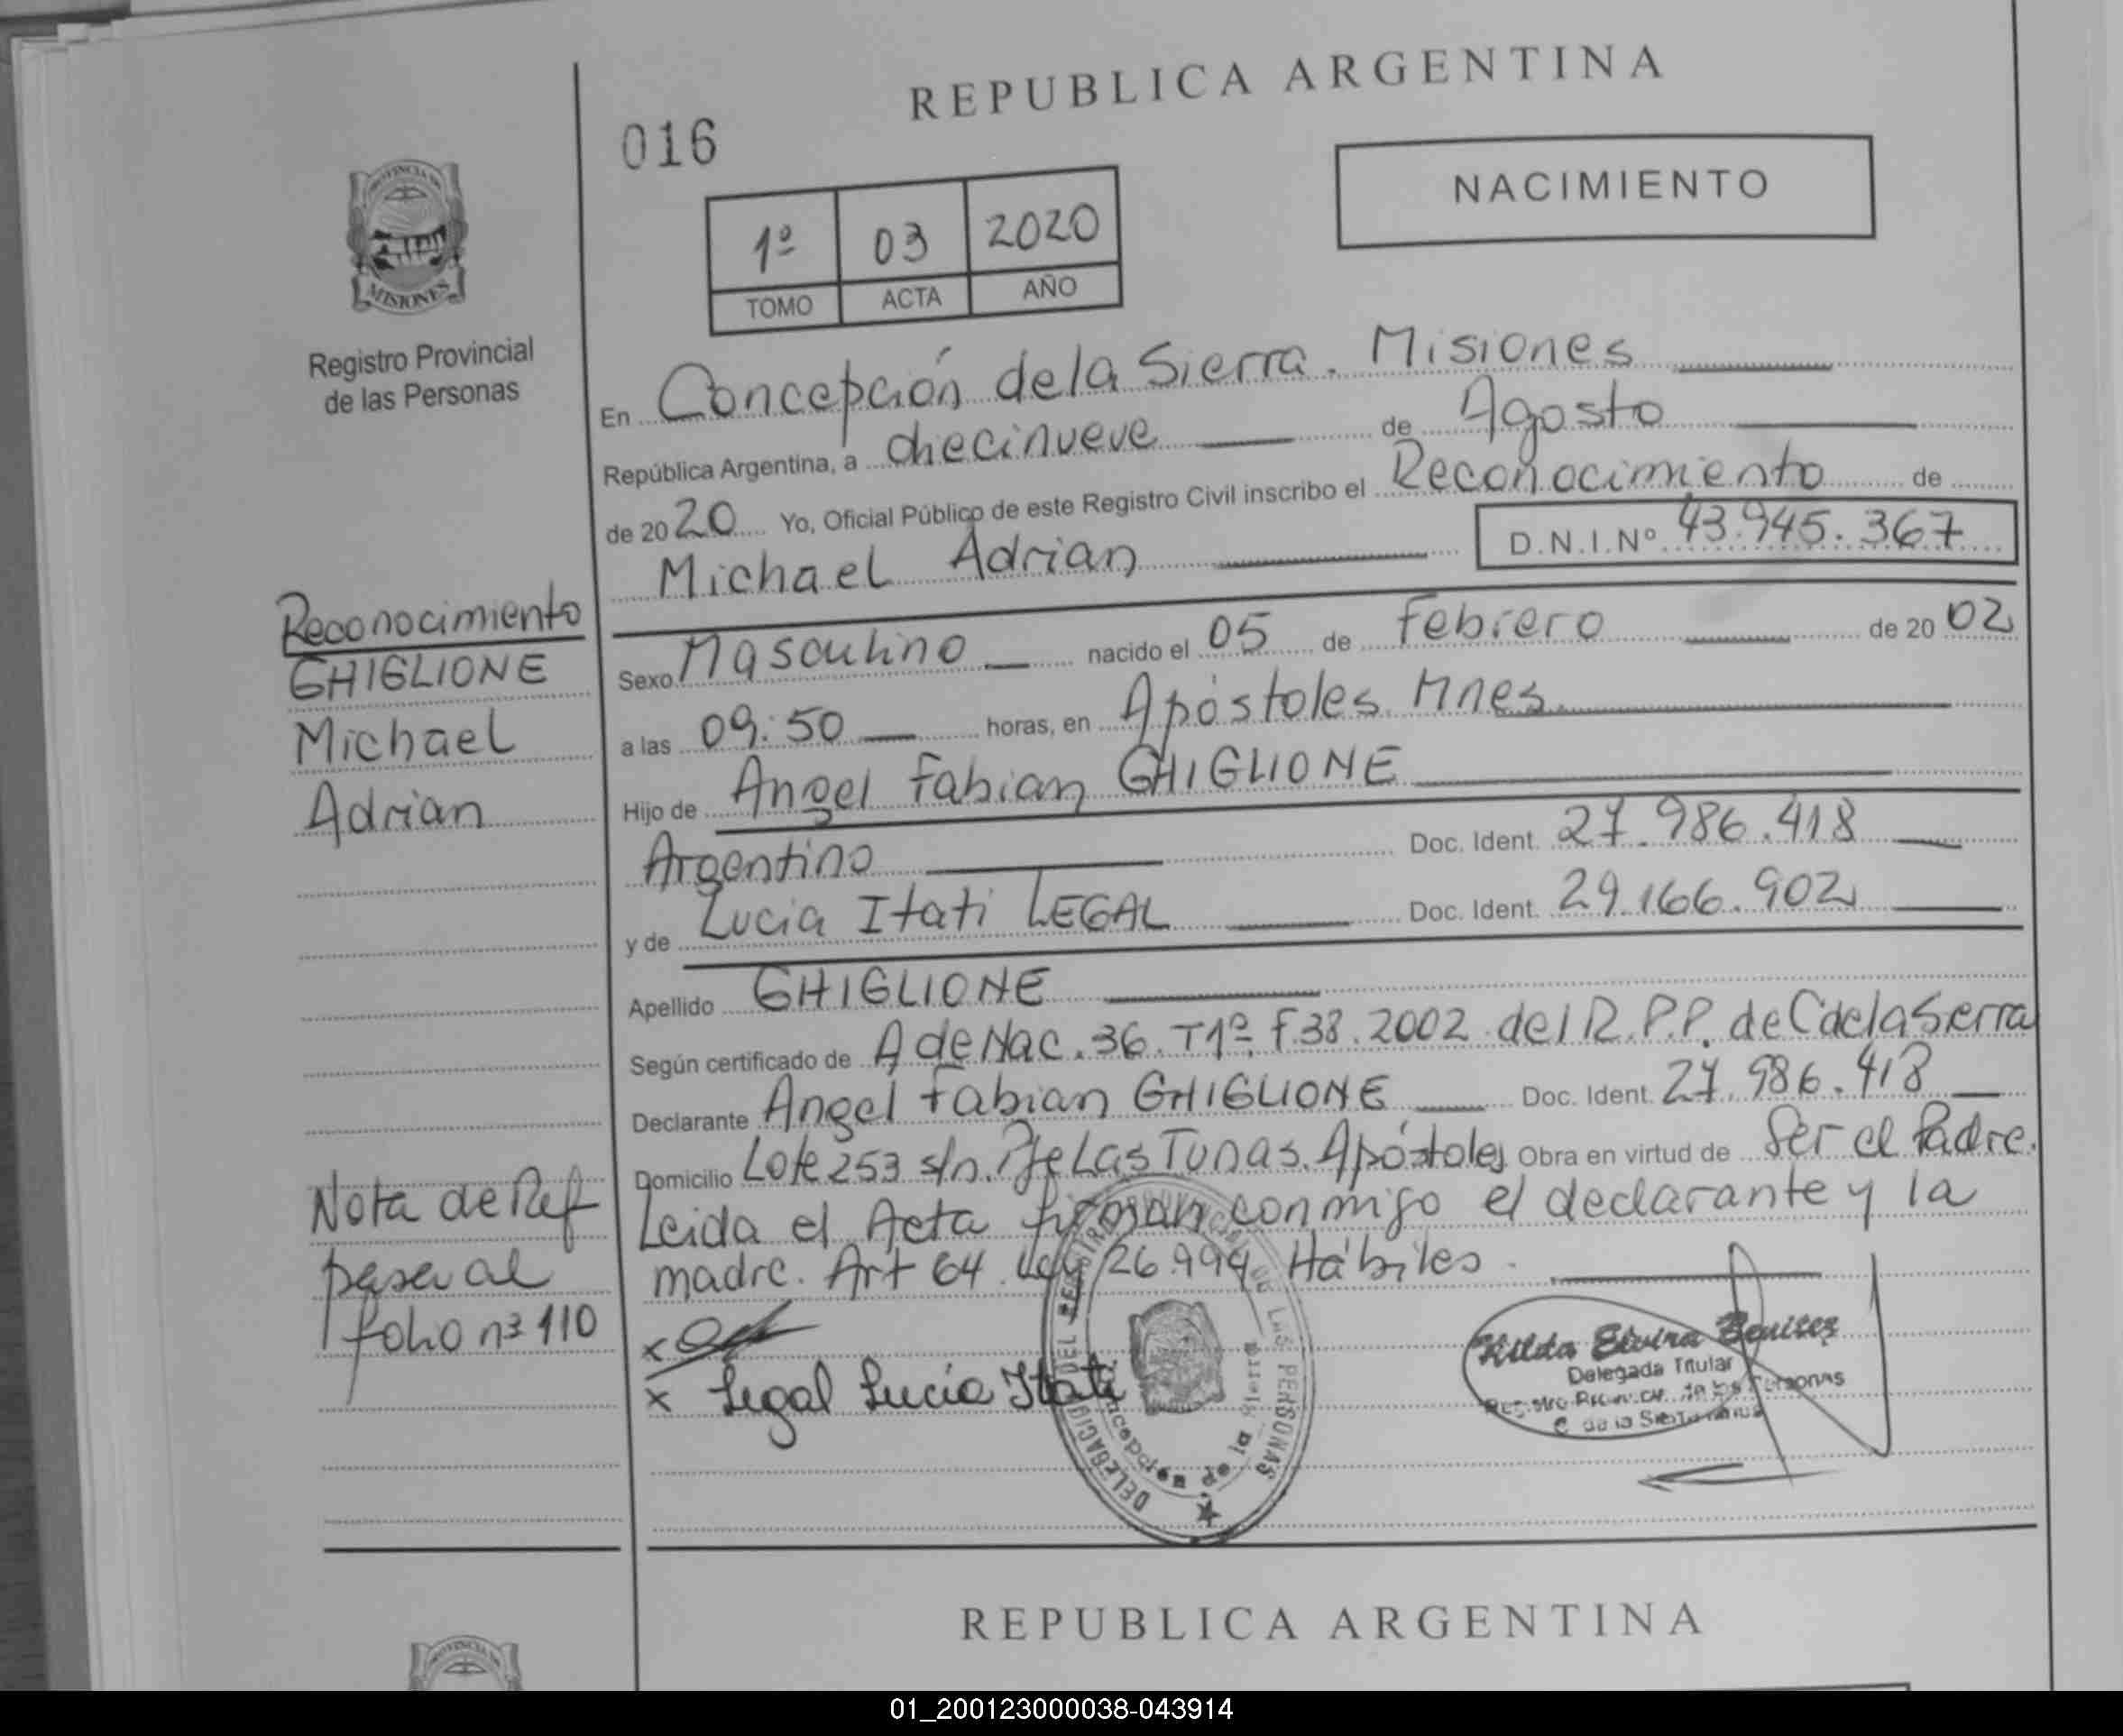 REPUBLICA ARGENTINA
016
NACIMIENTO
1º 03 2020
TOMO ACTA AÑO
PROVINCIA DE
MISIONES
Registro Provincial
de las Personas
En Concepción de la Sierra. Misiones
República Argentina, a diecinueve de Agosto
de 2020 Yo, Oficial Público de este Registro Civil inscribo el Reconocimiento de
Michael Adrian D.N.I.Nº 43.945.367
Reconocimiento
GHIGLIONE
Michael
Adrian
Sexo Masculino nacido el 05 de Febrero de 2002
a las 09:50 horas, en Apóstoles Mnes.
Hijo de Angel Fabian GHIGLIONE
Argentino Doc. Ident. 27.986.418
y de Lucia Itati LEGAL Doc. Ident. 29.166.902
Apellido GHIGLIONE
Según certificado de A de Nac. 36. T1º. F.38. 2002 del R.P.P. de C de la Sierra
Declarante Angel Fabian GHIGLIONE Doc. Ident. 27.986.418
Domicilio Lote 253 s/n. Las Tunas. Apóstoles Obra en virtud de Ser el Padre.
Leida el Acta firman conmigo el declarante y la
madre. Art 64. Ley 26.994. Hábiles.
Nota de Ref
pasa al
folio nº 110
x
x Legal Lucia Itati
DELEGACION DEL REGISTRO PROVINCIAL DE LAS PERSONAS
Concepción de la Sierra
Hilda Elvira Benitez
Delegada Titular
Registro Provincial de las Personas
C. de la Sierra
REPUBLICA ARGENTINA
PROVINCIA DE
01_200123000038-043914